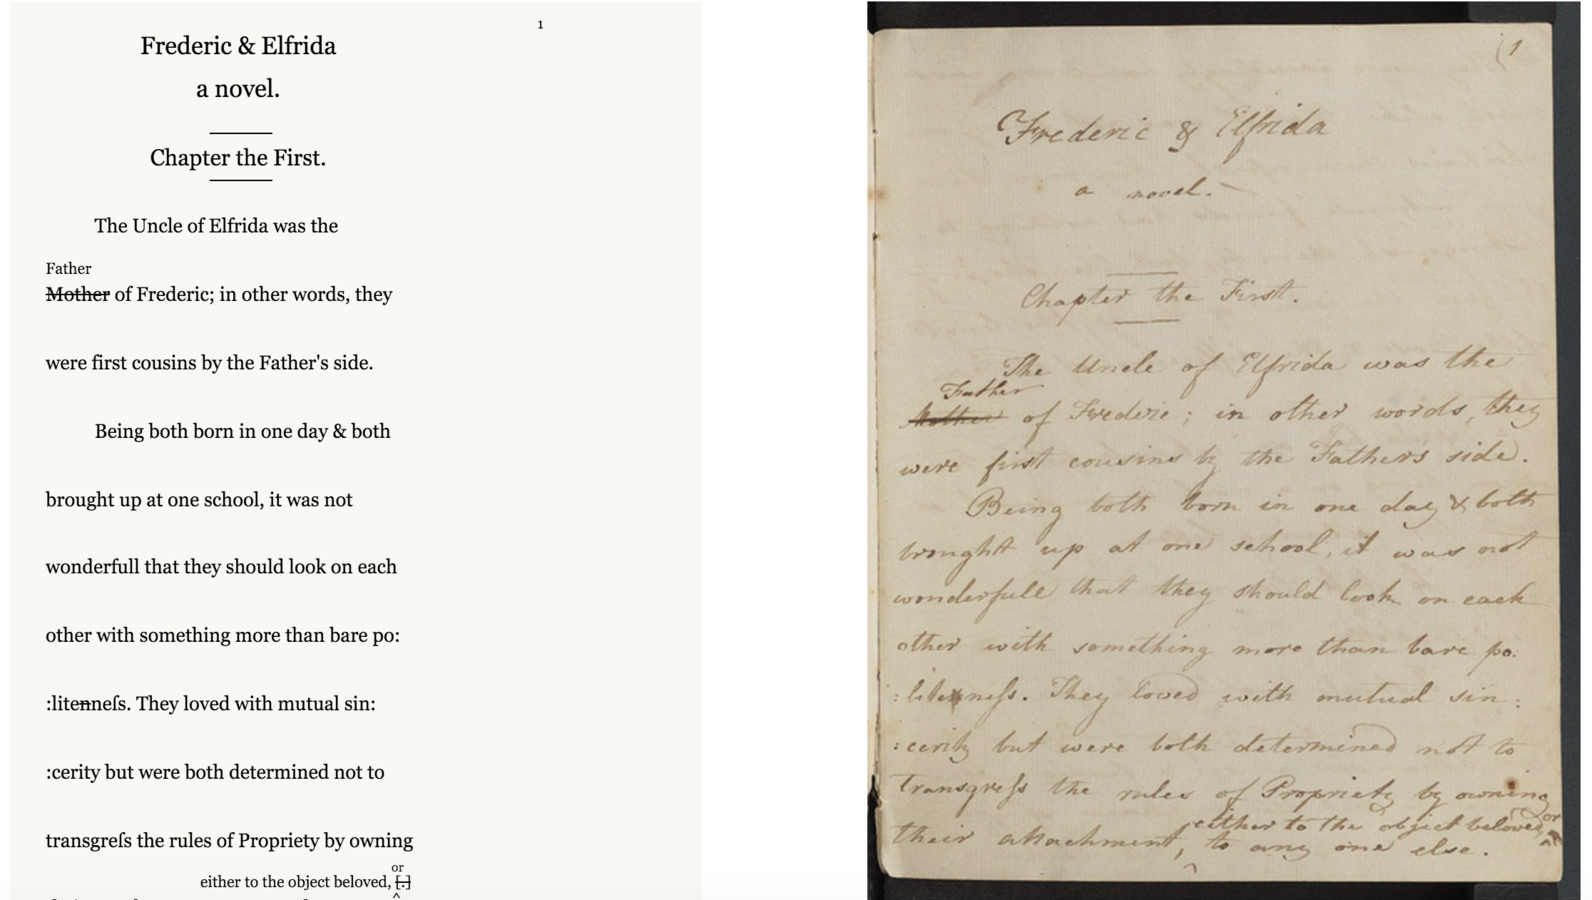 1
Frederic & Elfrida
a novel.
Chapter the First.
The Uncle of Elfrida was the
Father
Mother of Frederic; in other words, they
were first cousins by the Father's side.
Being both born in one day & both
brought up at one school, it was not
wonderfull that they should look on each
other with something more than bare po:
:litenneſs. They loved with mutual sin:
:cerity but were both determined not to
transgreſs the rules of Propriety by owning
or
either to the object beloved, [.]
^
1
Frederic & Elfrida
a novel.
Chapter the First.
The Uncle of Elfrida was the
Father
Mother of Frederic; in other words, they
were first cousins by the Father's side.
Being both born in one day & both
brought up at one school, it was not
wonderfull that they should look on each
other with something more than bare po:
:liteneſs. They loved with mutual sin:
:cerity but were both determined not to
transgreſs the rules of Propriety by owning
either to the object beloved, or
their attachment, to any one else.